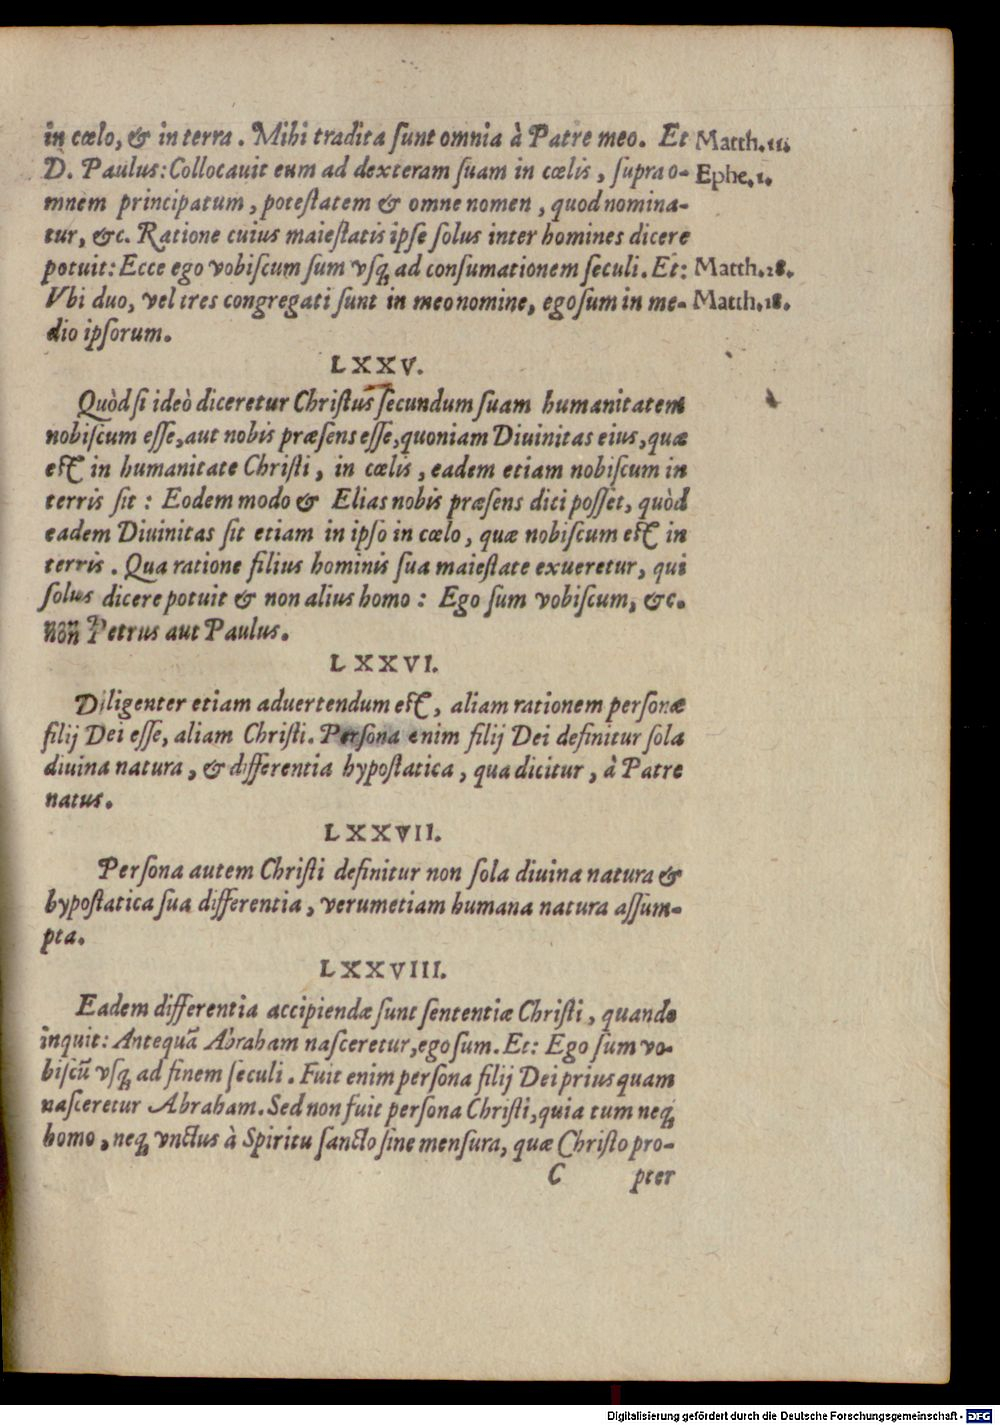 in cœlo, & in terra. Mihi tradita ſunt omnia à Patre meo. Et Matth.11.
D. Paulus: Collocauit eum ad dexteram ſuam in cœlis, ſupra o- Ephe.1.
mnem principatum, poteſtatem & omne nomen, quod nomina-
tur, &c. Ratione cuius maieſtatis ipſe ſolus inter homines dicere
potuit: Ecce ego vobiſcum ſum vſq́ ad conſumationem ſeculi. Et: Matth.28.
Vbi duo, vel tres congregati ſunt in meo nomine, ego ſum in me- Matth.18.
dio ipſorum.
LXXV.
Quòd ſi ideò diceretur Chriſtus ſecundum ſuam humanitatem
nobiſcum eſſe, aut nobis præſens eſſe, quoniam Diuinitas eius, quæ
eſt in humanitate Chriſti, in cœlis, eadem etiam nobiſcum in
terris ſit: Eodem modo & Elias nobis præſens dici poſſet, quòd
eadem Diuinitas ſit etiam in ipſo in cœlo, quæ nobiſcum eſt in
terris. Qua ratione filius hominis ſua maieſtate exueretur, qui
ſolus dicere potuit & non alius homo: Ego ſum vobiſcum, &c.
non Petrus aut Paulus.
LXXVI.
Diligenter etiam aduertendum eſt, aliam rationem perſonæ
filij Dei eſſe, aliam Chriſti. Perſona enim filij Dei definitur ſola
diuina natura, & differentia hypoſtatica, qua dicitur, à Patre
natus.
LXXVII.
Perſona autem Chriſti definitur non ſola diuina natura &
hypoſtatica ſua differentia, verumetiam humana natura aſſum-
pta.
LXXVIII.
Eadem differentia accipiendæ ſunt ſententiæ Chriſti, quando
inquit: Antequã Abraham naſceretur, ego ſum. Et: Ego ſum vo-
biſcũ vſq́ ad finem ſeculi. Fuit enim perſona filij Dei prius quam
naſceretur Abraham. Sed non fuit perſona Chriſti, quia tum neq́
homo, neq́ vnctus à Spiritu ſancto ſine menſura, quæ Chriſto pro-
C pter
Digitalisierung gefördert durch die Deutsche Forschungsgemeinschaft - DFG